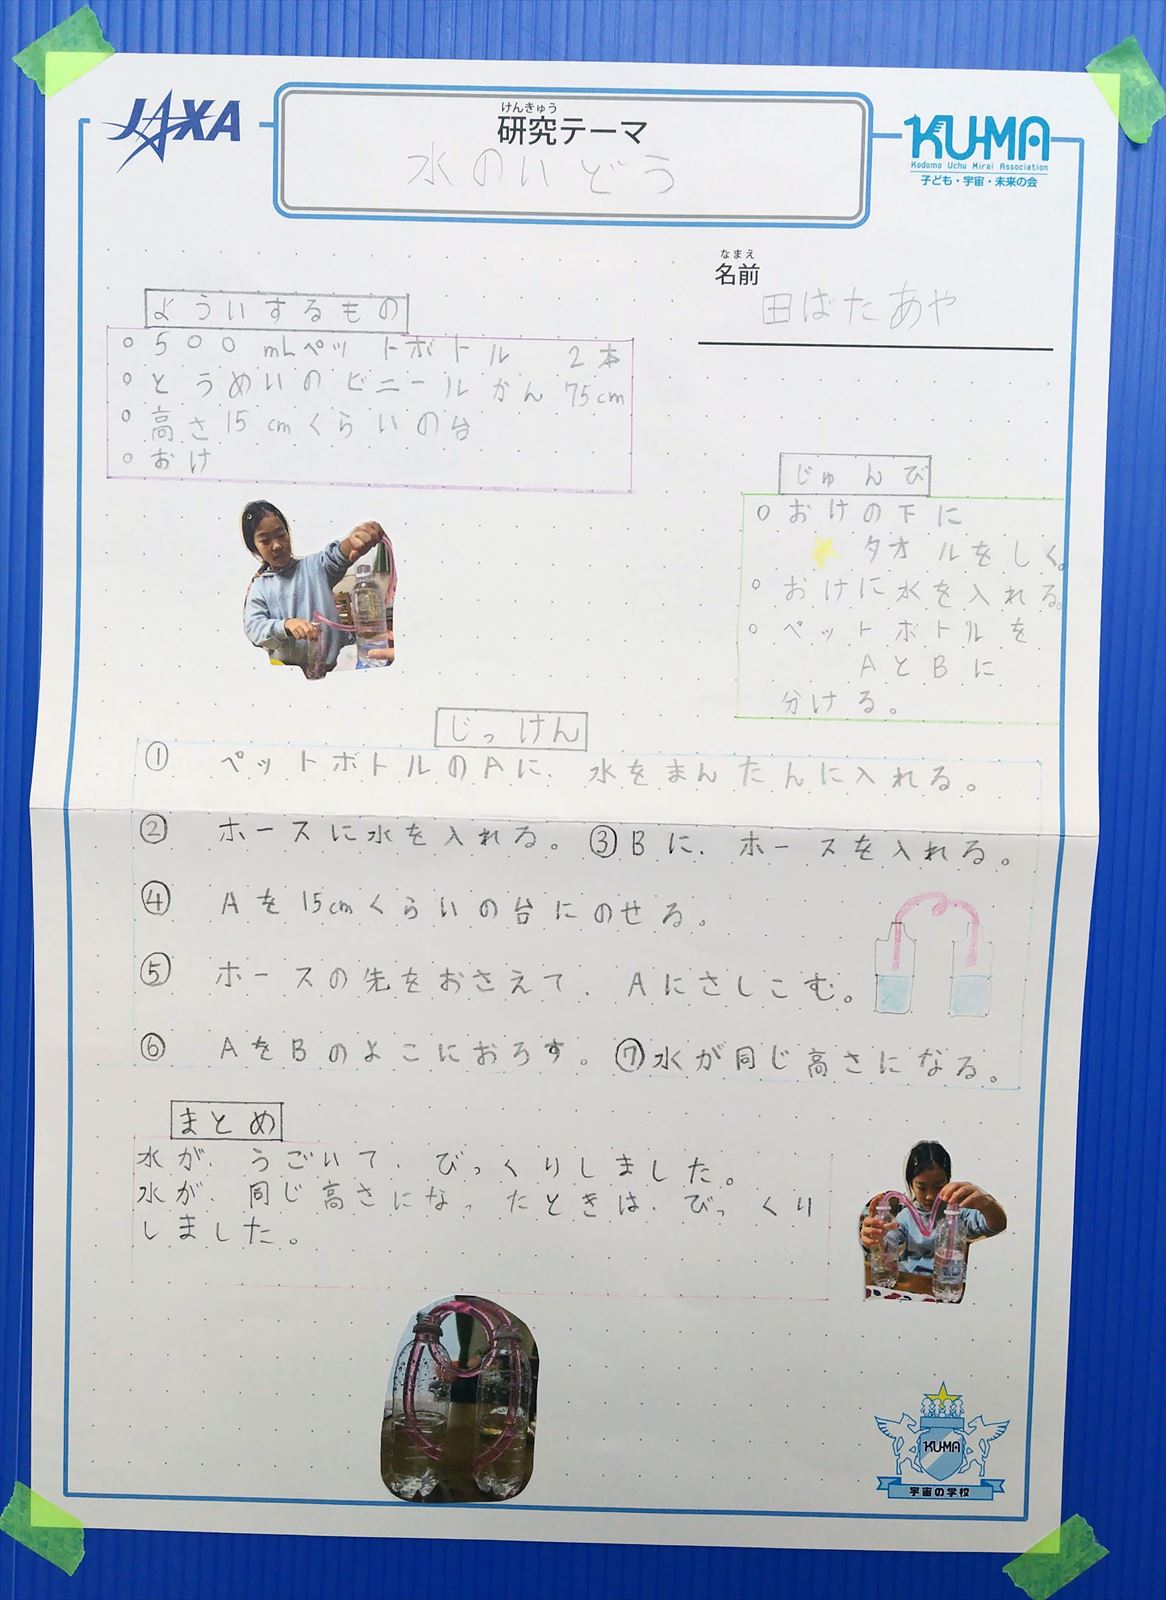 JAXA
けんきゅう
研究テーマ
水のいどう
KU-MA
Kodomo Uchu Mirai Association
子ども・宇宙・未来の会
なまえ
名前
田ばたあや
よういするもの
○500mLペットボトル 2本
○とうめいのビニールかん75cm
○高さ15cmくらいの台
○おけ
じゅんび
○おけの下に
タオルをしく。
○おけに水を入れる。
○ペットボトルを
AとBに
分ける。
じっけん
① ペットボトルのAに、水をまんたんに入れる。
② ホースに水を入れる。③Bに、ホースを入れる。
④ Aを15cmくらいの台にのせる。
⑤ ホースの先をおさえて、Aにさしこむ。
⑥ AをBのよこにおろす。⑦水が同じ高さになる。
まとめ
水が、うごいて、びっくりしました。
水が、同じ高さになったときは、びっくり
しました。
KU-MA
宇宙の学校